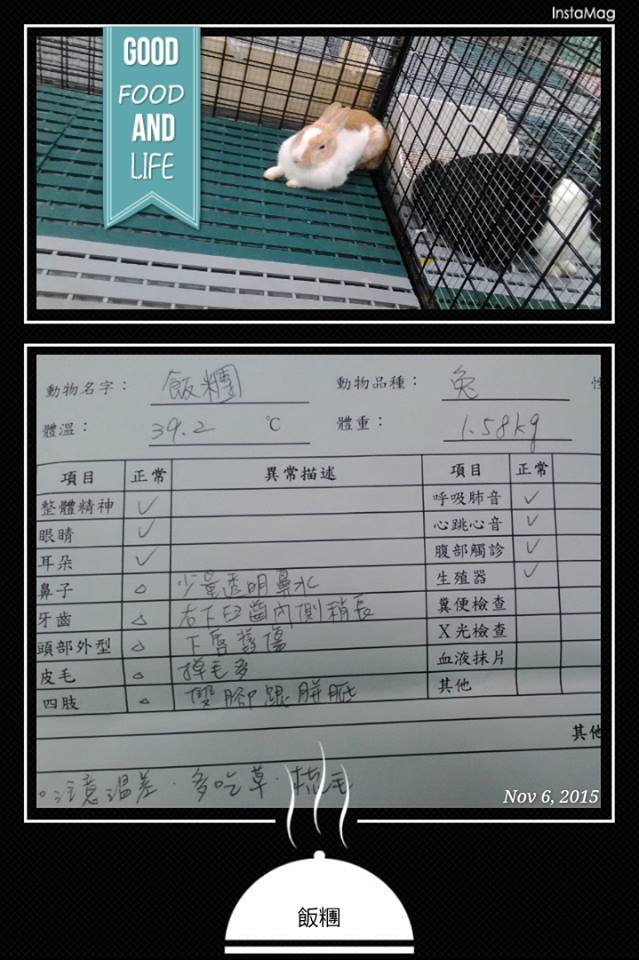 InstaMag
GOOD
FOOD
AND
LIFE
動物名字： 飯糰 動物品種： 兔
體溫： 39.2 ℃ 體重： 1.58kg
項目 正常 異常描述 項目 正常
整體精神 ✓ 呼吸肺音 ✓
眼睛 ✓ 心跳心音 ✓
耳朵 ✓ 腹部觸診 ✓
鼻子 △ 少量透明鼻水 生殖器 ✓
牙齒 △ 右下臼齒內側稍長 糞便檢查
頭部外型 △ 下唇舊傷 X光檢查
皮毛 △ 掉毛多 血液抹片
四肢 △ 雙腳跟胼胝 其他
其他
。注意溫差．多吃草．梳毛
Nov 6, 2015
飯糰